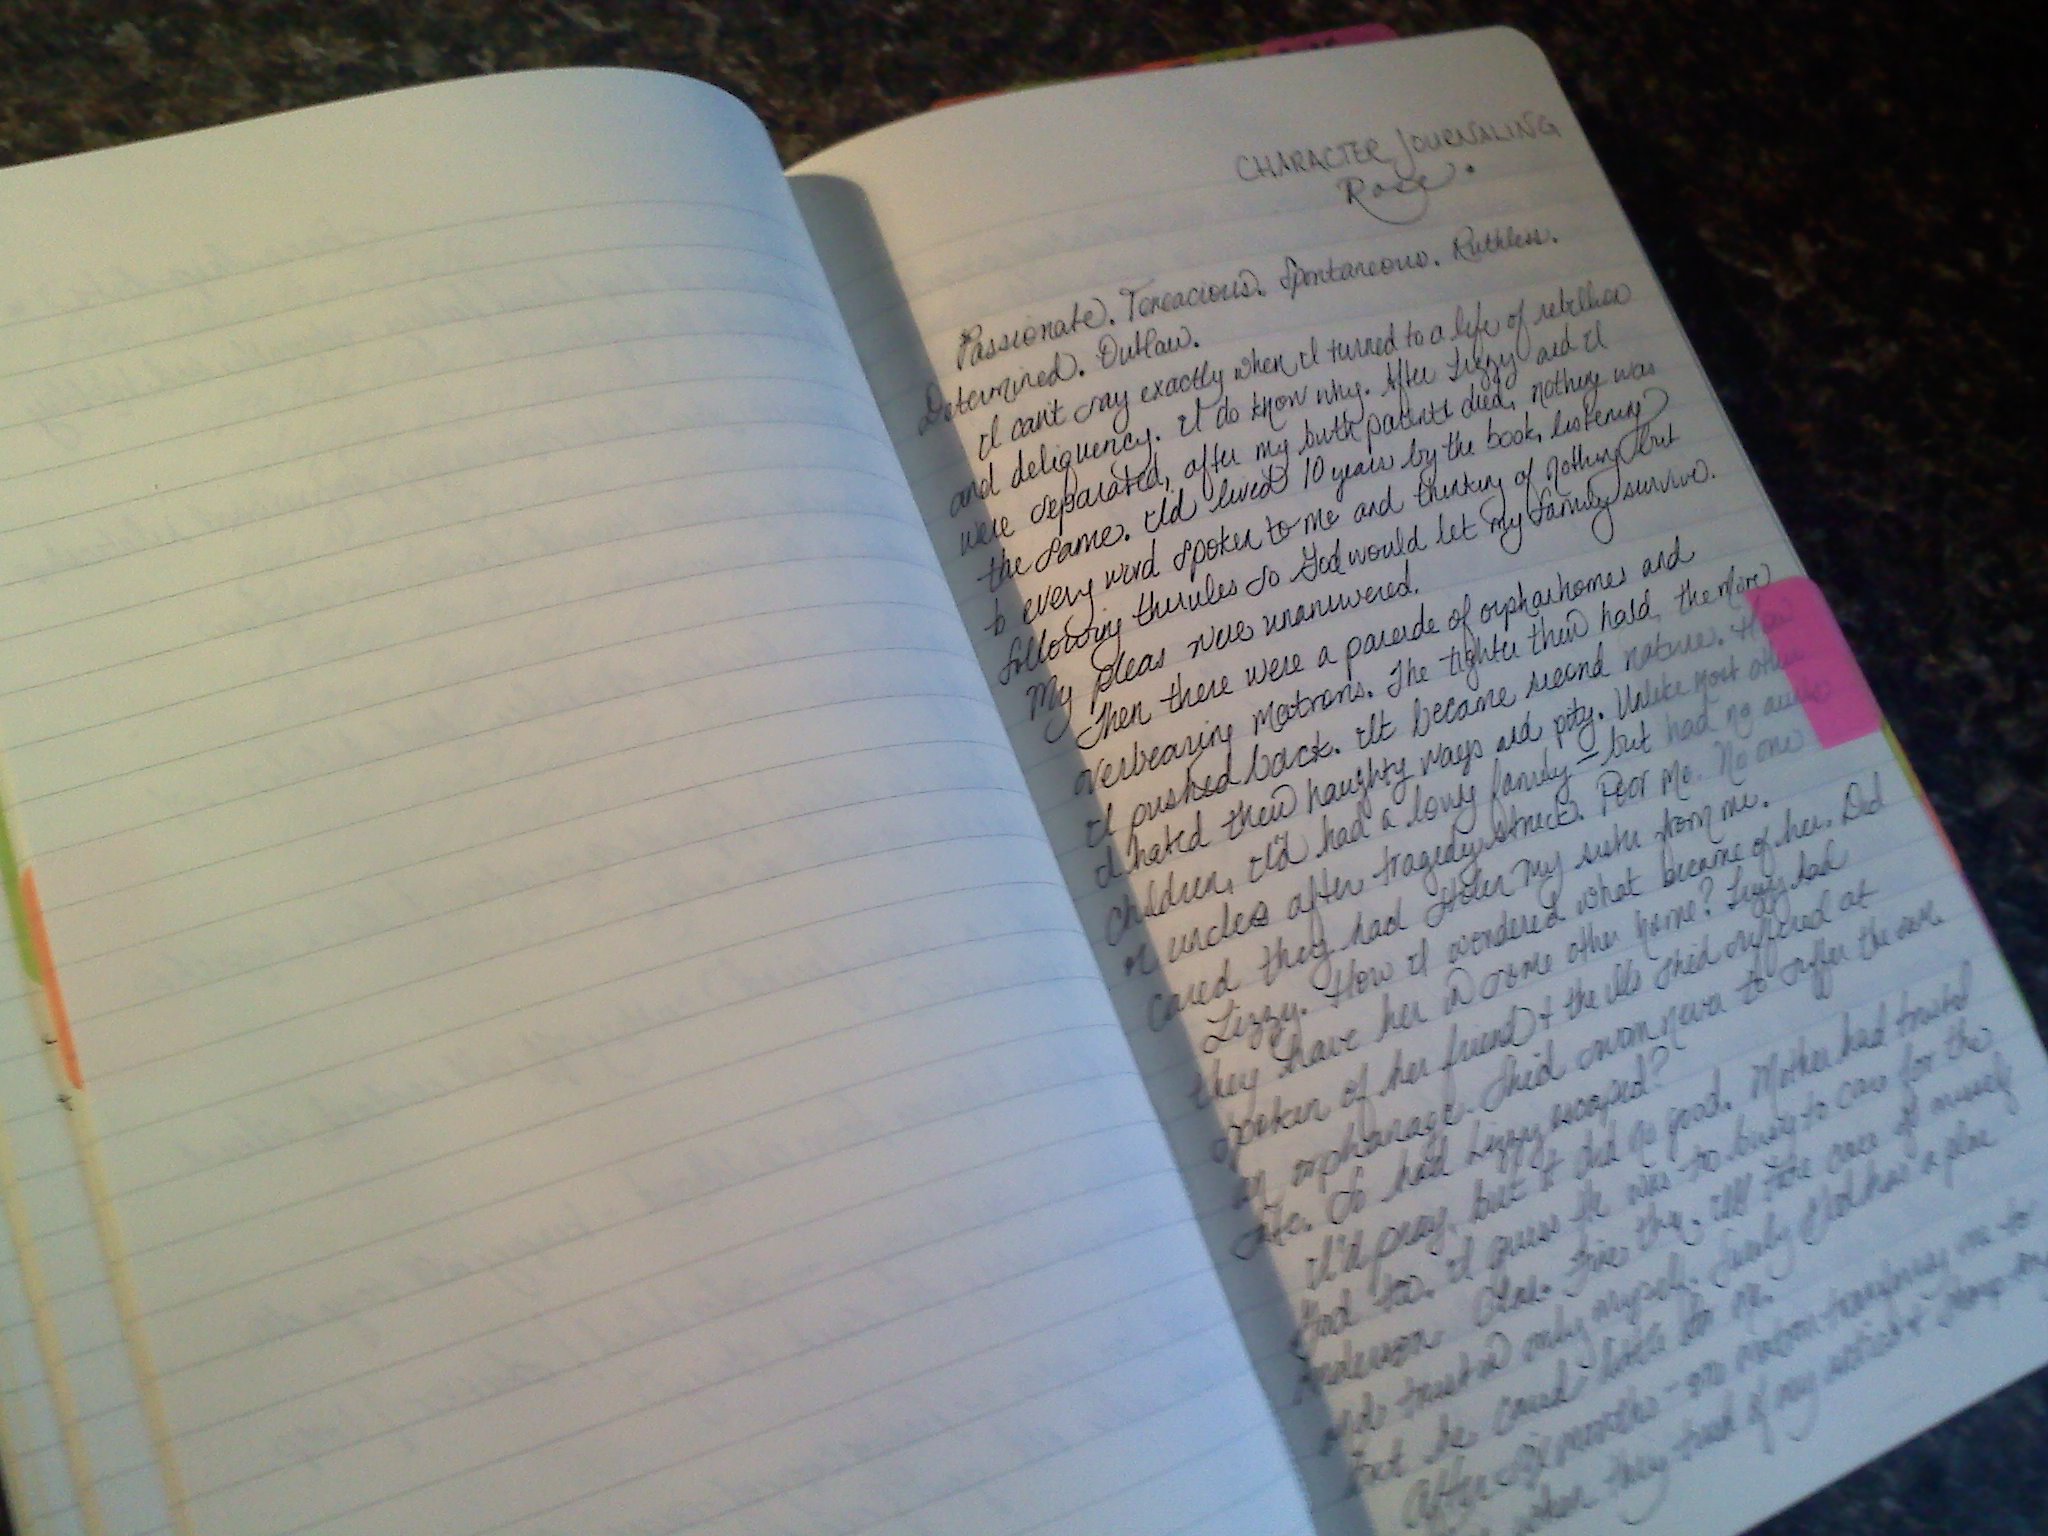 CHARACTER JOURNALING
Rose.
Passionate. Teneacious. Spontaneous. Ruthless.
Determined. Outlaw.
I can't say exactly when I turned to a life of rebellion
and deliquency. I do know why. After Lizzy and I
were separated, after my birth parents died, nothing was
the same. I'd lived 10 years by the book, listening
to every word spoken to me and thinking of nothing but
following the rules so God would let my family survive.
My pleas were unanswered.
Then there were a parade of orphanhomes and
overbearing matrons. The tighter their hold, the more
I pushed back. It became second nature. How
I hated their haughty ways and pity. Unlike most other
children, I'd had a loving family - but had no aunts
or uncles after tragedy struck. Poor me. No one
cared they had stolen my sister from me.
Lizzy. How I wondered what became of her. Did
they have her in some other home? Lizzy had
spoken of her friend & the ills she'd suffered at
an orphanage. She'd sworn never to suffer the same
fate. So had Lizzy escaped?
I'd pray, but it did no good. Mother had trusted
God too. I guess He was too busy to care for the
Anderson clan. Fine then. I'll take care of myself
and trust in only myself. Surely God has a plan
but he cared little for me.
After six months - matron
when they tired of my antics &